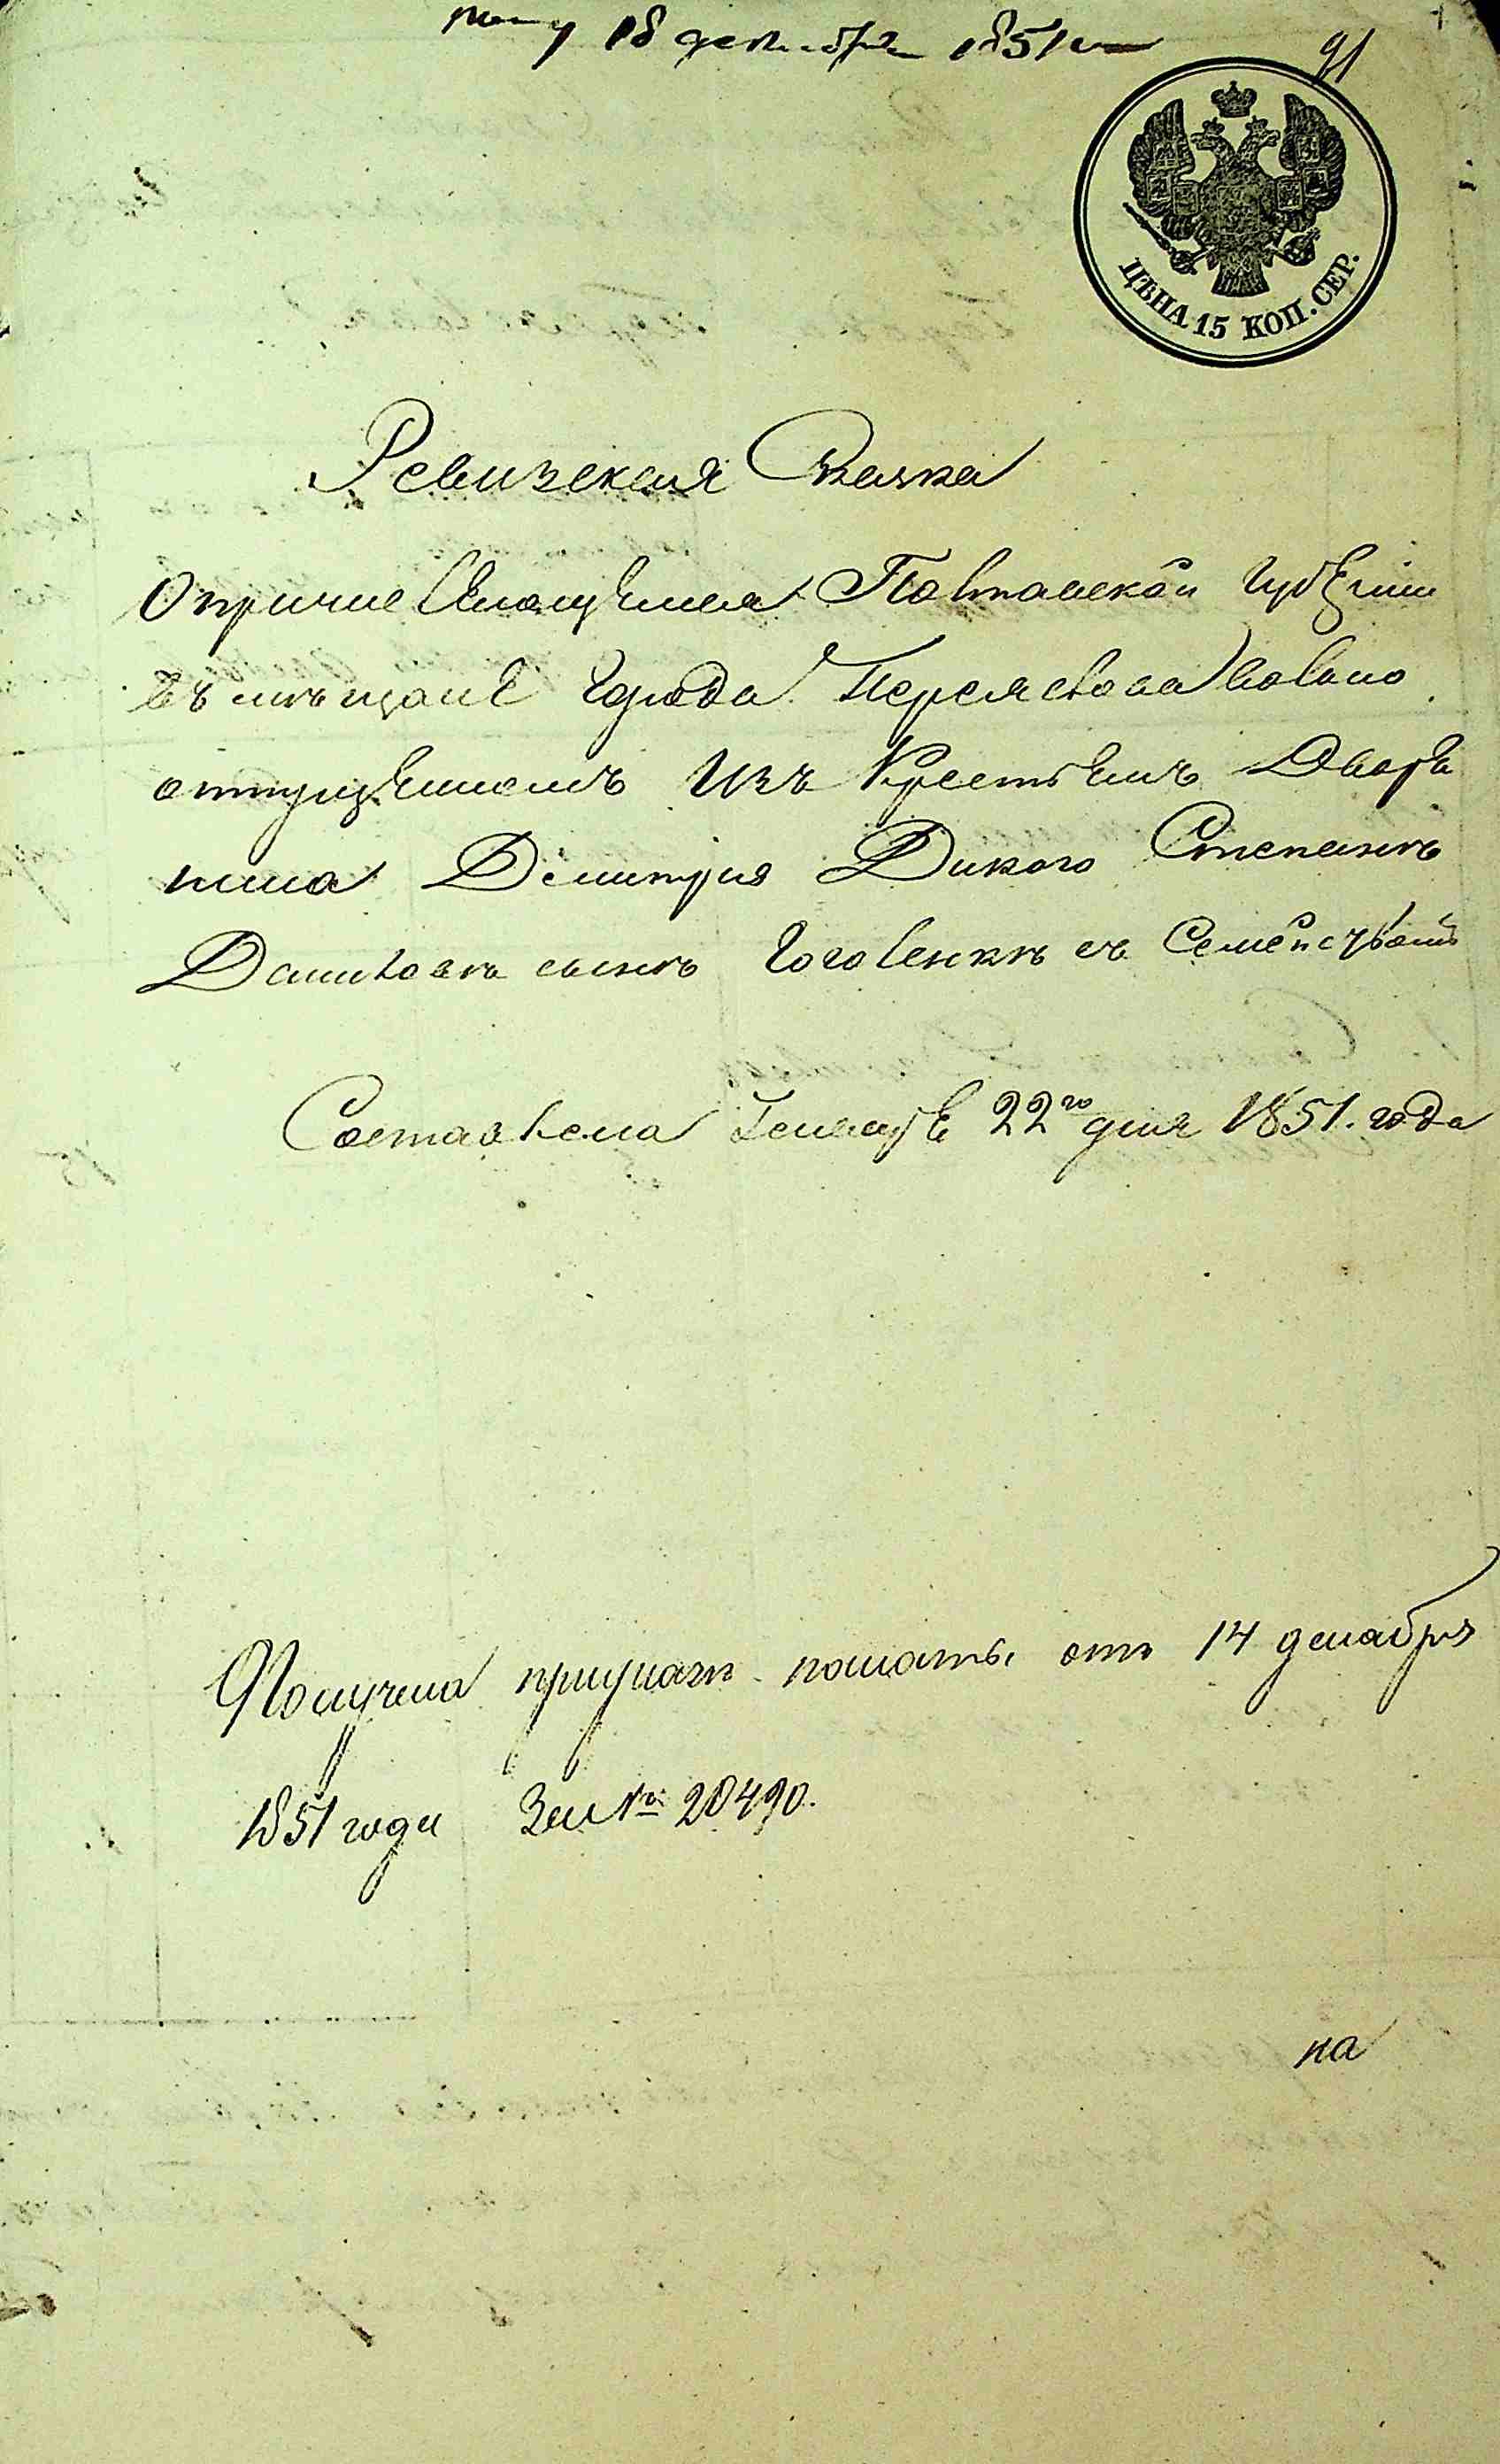 18 декабря 1851
91
ЦѢНА 15 КОП. СЕР.
Ревизская Сказка
О причисляющемся Полтавской Губерніи
въ мѣщане города Переяслова вольно
отпущенномъ Изъ Крестьянъ Дворя
нина Дмитрія Дикого Степанѣ
Даниловѣ сынѣ Гоголенкѣ съ Семействомъ
Составлена Генваря 22го дня 1851. года
Получена при указѣ палаты отъ 14 декабря
1851 года За № 20490.
на